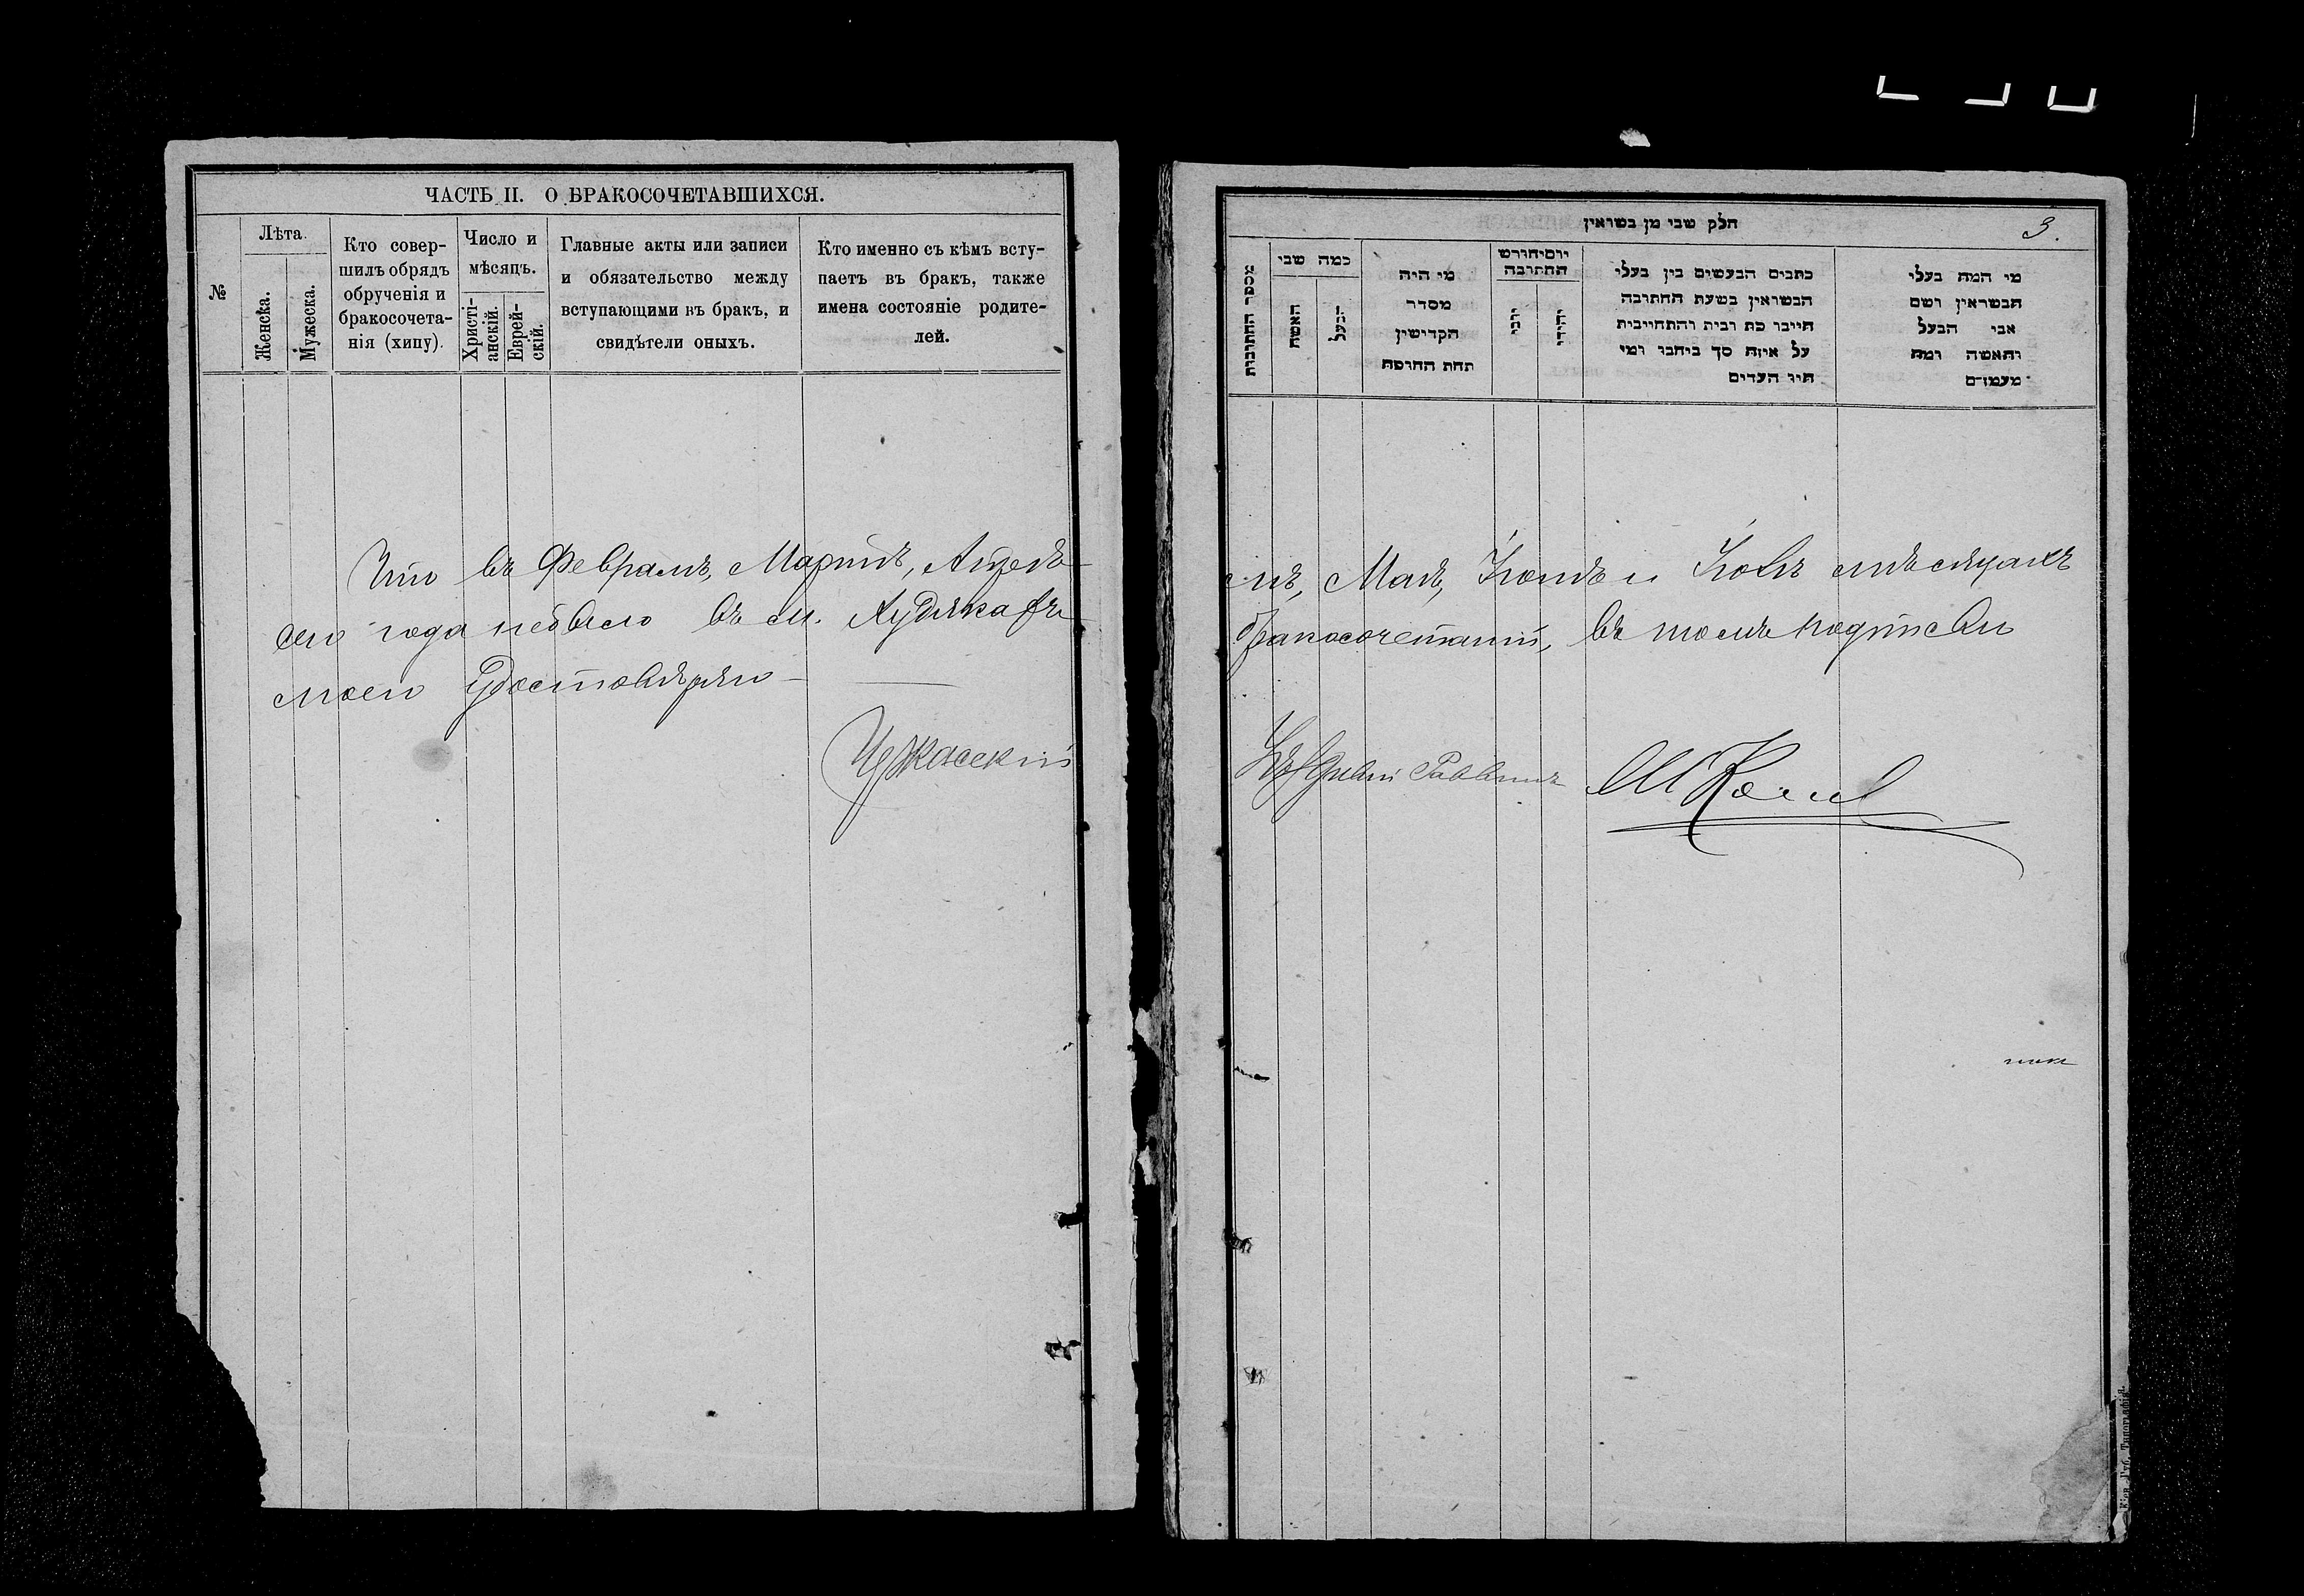 ЧАСТЬ II. О БРАКОСОЧЕТАВШИХСЯ.
№
Лѣта.
Женска.
Мужеска.
Кто совер-
шилъ обрядъ
обрученія и
бракосочета-
нія (хипу).
Число и
мѣсяцъ.
Христі-
анскій.
Еврей-
скій.
Главные акты или записи
и обязательство между
вступающими въ бракъ, и
свидѣтели оныхъ.
Кто именно съ кѣмъ всту-
паетъ въ бракъ, также
имена состояніе родите-
лей.
Что въ Февралѣ, Мартѣ, Апрелѣ
сего года небыло въ м.
моею удостовѣряю
Черкасскій
חלק שבי מן בשואין
3.
מספר החתובות
כמה שבי
האשה
הבעל
מי היה
מסדר
הקדישין
תחת החופה
יוםיחודש
החתובה
כתבים הבעשים בין בעלי
הבשואין בשעת החתובה
חייבו כת רבית והתחייבית
על איזה סך ביחבו ומי
היו העדים
מי המה בעלי
הבשראין ושם
אבי הבעל
והאשה ומה
מעמדם
Маѣ, Іюнѣ и Іюлѣ мѣсяцахъ
бракосочетаній, въ томъ подписью
Раввинъ
Кіев. Губ. Типографія.